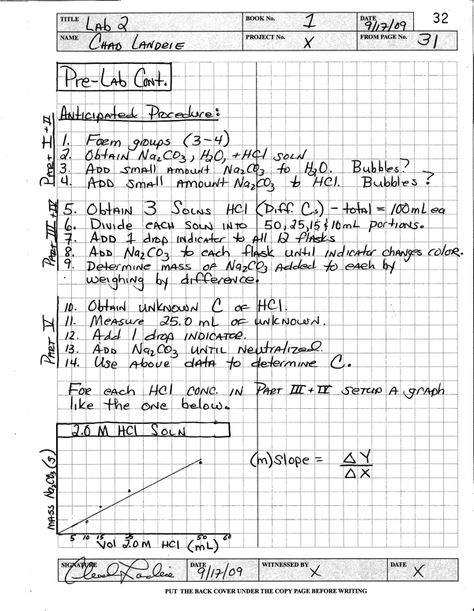 TITLE LAB 2 BOOK No. 1 DATE 9/17/09 32
NAME CHAD LANDRIE PROJECT No. X FROM PAGE No. 31
PRE-LAB CONT.
ANTICIPATED PROCEDURE:
PART I + II
1. FORM GROUPS (3-4)
2. OBTAIN Na2CO3, H2O, + HCl SOLN
3. ADD SMALL AMOUNT Na2CO3 to H2O. Bubbles?
4. ADD SMALL AMOUNT Na2CO3 to HCl. Bubbles?
PART III + IV
5. OBTAIN 3 SOLNS HCl (Diff. Cs) - total = 100mL ea
6. Divide each SOLN INTO 50, 25, 15 & 10mL portions.
7. ADD 1 drop indicator to All 12 flasks
8. ADD Na2CO3 to each flask until indicator changes color.
9. Determine mass of Na2CO3 Added to each by
weighing by difference.
PART V
10. Obtain unknown C of HCl.
11. Measure 25.0 mL of unknown.
12. Add 1 drop INDICATOR.
13. ADD Na2CO3 UNTIL Neutralized.
14. Use Above data to determine C.
FOR each HCl CONC. IN PART III + IV SETUP A graph
like the one below.
2.0 M HCl SOLN
MASS Na2CO3 (g)
(m) Slope = ΔY
ΔX
5 10 15 50 60
Vol 2.0 M HCl (mL)
SIGNATURE Chad Landrie DATE 9/17/09 WITNESSED BY X DATE X
PUT THE BACK COVER UNDER THE COPY PAGE BEFORE WRITING